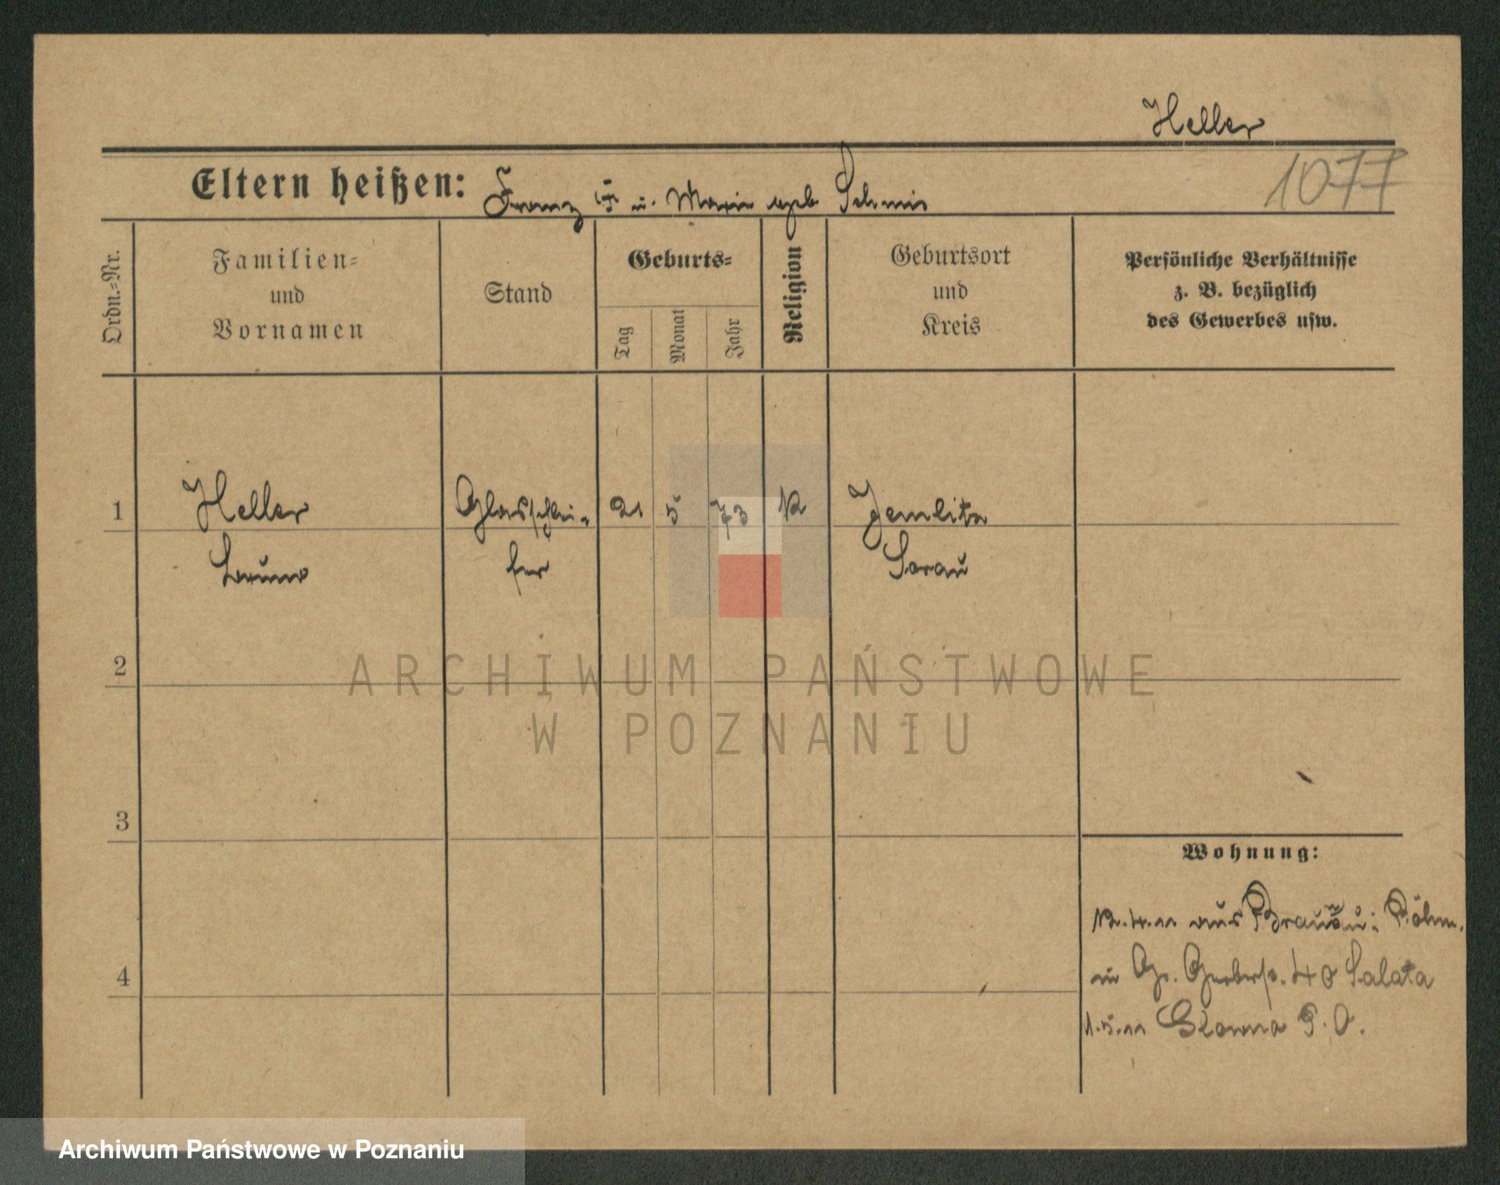 Heller
1077
Eltern heißen: Franz u. Marie geb.
Ordn.-Nr.
Familien-
und
Vornamen
Stand
Geburts-
Tag
Monat
Jahr
Religion
Geburtsort
und
Kreis
Persönliche Verhältnisse
z. B. bezüglich
des Gewerbes usw.
1
Heller
Bruno
Glasschlei-
fer
21
5
73
Jemlitz
Sorau
2
3
4
Wohnung:
12.4.11 aus Braunau i. Böhm.
in Gr. 40 Salata
1.5.11 Glowno P. O.
ARCHIWUM PAŃSTWOWE
W POZNANIU
Archiwum Państwowe w Poznaniu